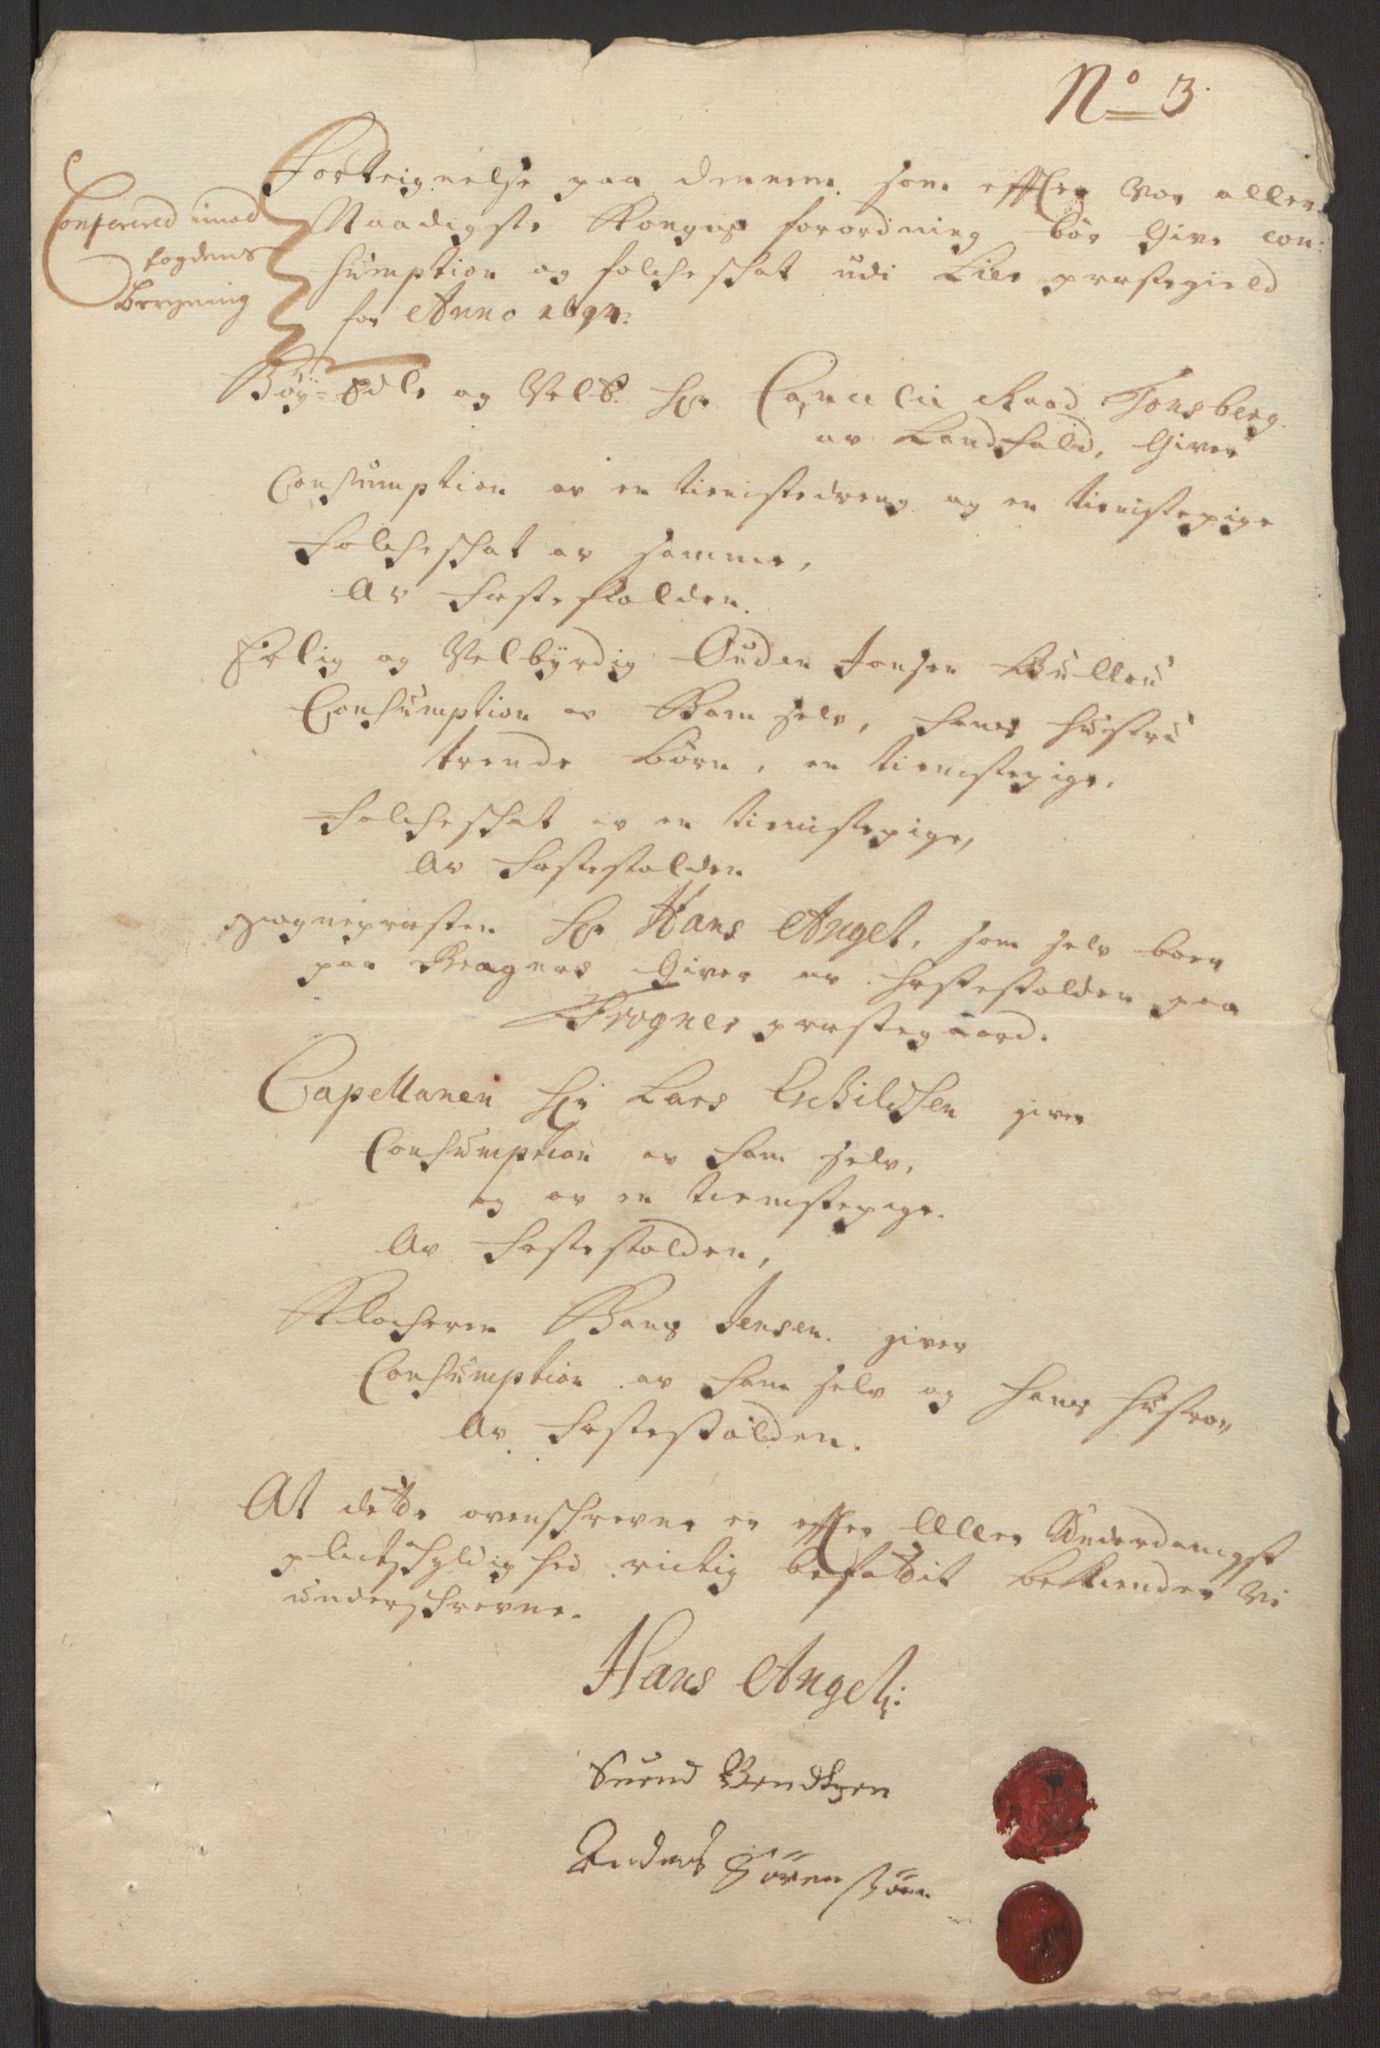 No 3.
Confererid imod
fogdens
Beregning
Forteignelse paa dennem som effter Vor aller
Naadigste Konges forordning bør Give Con:
sumption og folcheschat udi Lier præstegield
for Anno 1694:
Høy-Edle og Velb. Hr Cancelie Raad Tonsberg
av Landfald, Giver
Consumption av en tienistedreng og en tienistepige
Folcheschat av samme,
Av Hæsteskolden.
Erlig og Velbyrdig Ouden Jonsen Bulleu
Consumption av Ham selv, hans hustru
trende børn, en tienistepige,
Folcheschat av en tienistepige,
Av Hæsteskolden
Sognepræsten Hr Hans Angel, som selv boer
paa Bragnes Giver av hæsteskolden paa
Frogner præstegaard.
Capellanen Hr Lars Eschildsen giver
Consumption av ham selv,
og av en tienistepige.
Av Hæsteskolden,
Klocheren Hans Jensen giver
Consumption av ham selv og hans hustro,
Av Hæsteskolden.
At dette ovenschrevne er effter Aller Underdanigst
plictschyldighed rictig befattit bekiender Vi
underschrevne.
Hans Angel:
Suend Bendtzen
Anders Sörensön